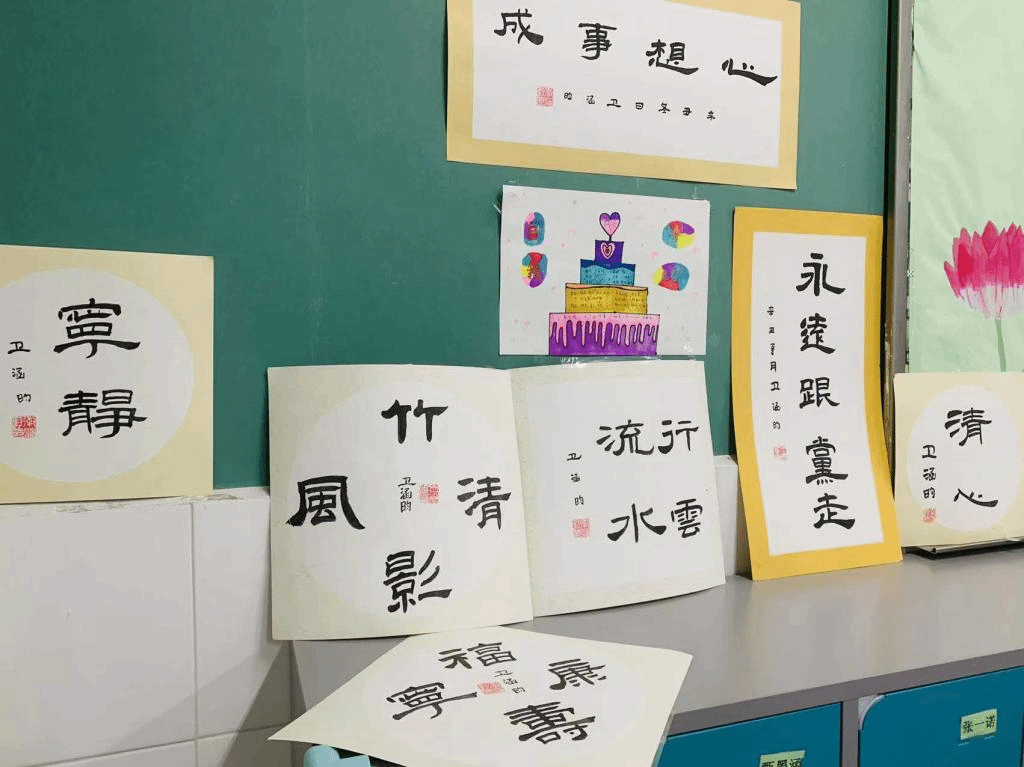 心想事成
辛丑冬日卫涵昀
寧靜
卫涵昀
竹影清風
卫涵昀
行雲
流水
卫涵昀
永遠跟黨走
辛丑夏月卫涵昀
清心
卫涵昀
福壽康寧
卫涵昀
张一诺